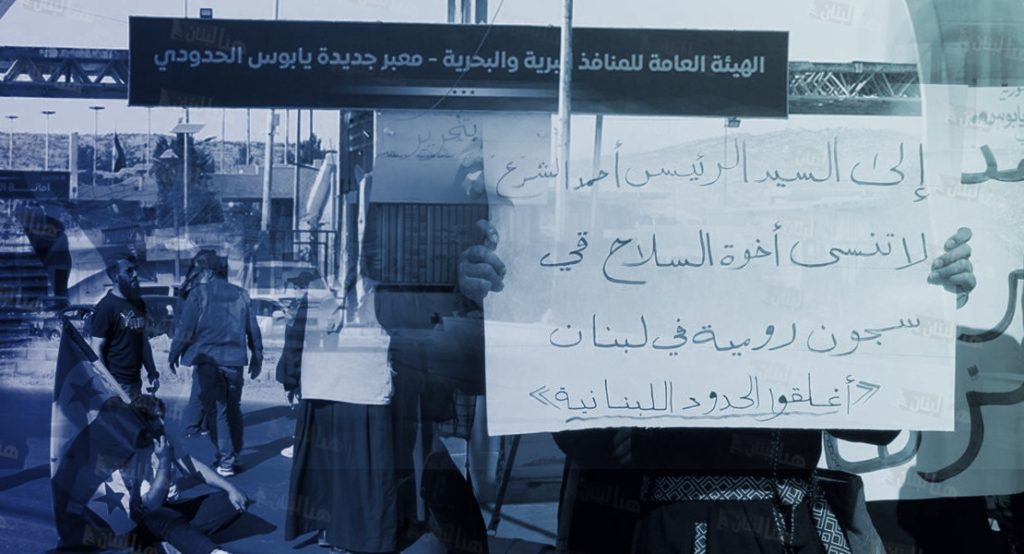 الهيئة العامة للمنافذ البرية والبحرية - معبر جديدة يابوس الحدودي
إلى السيد الرئيس أحمد الشرع
لا تنسى أخوة السلاح في
سجون رومية في لبنان
«أغلقوا الحدود اللبنانية»
هنا لبنان